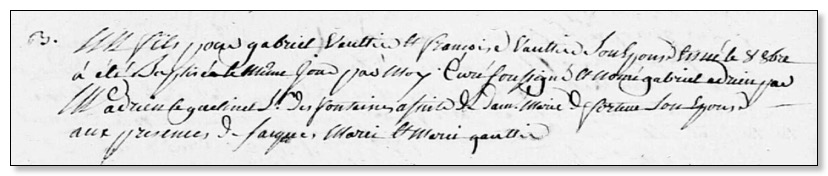 63. Un fils pour gabriel Vaultier et françoise Vaultier Son Epouse Est né le 8 8bre
à été Baptisé le même Jour par moy Curé soussigné et nomé gabriel adrien par
Mr adrien le quelinel Sr. des fontaines assisté de dam. Marie de Son Epouse
aux presences de jacques Marie Et Marie gaultier